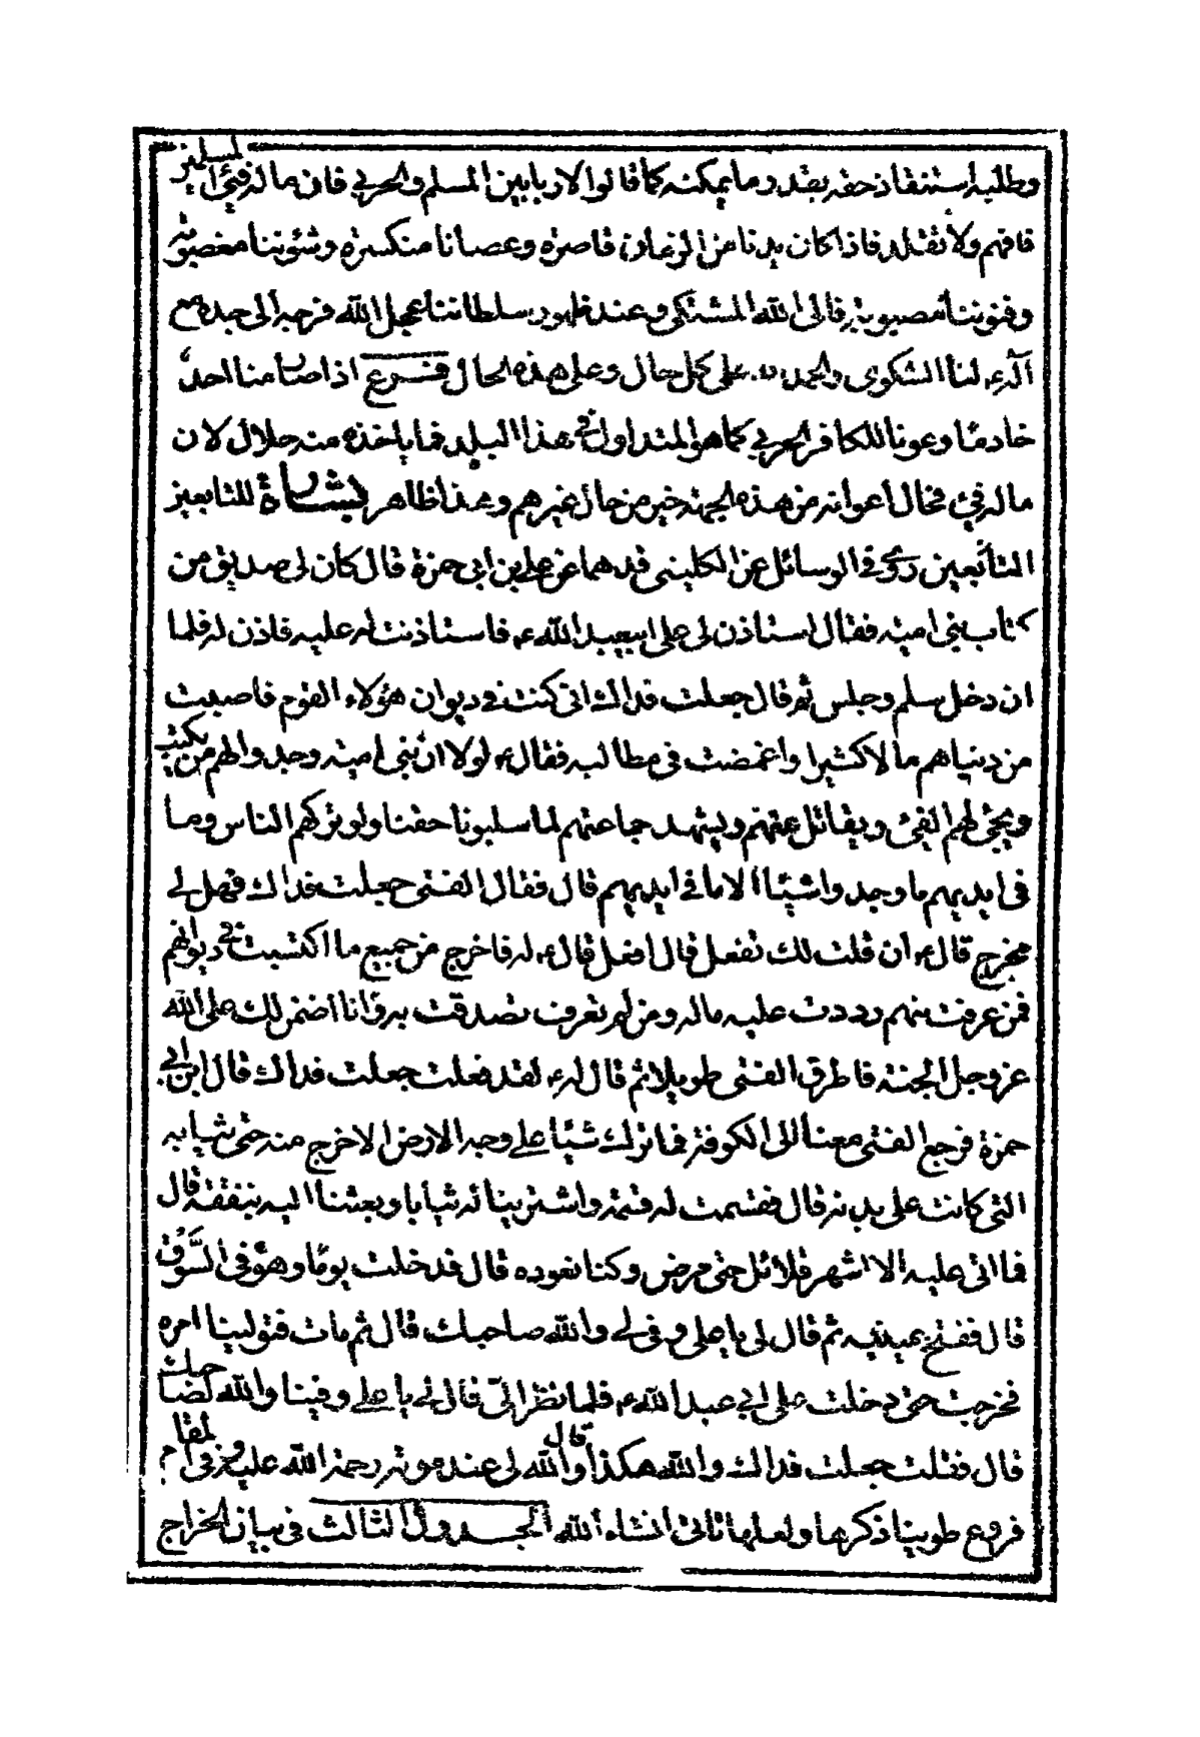 وطلبه استنقاذ حقه بقدر ما يمكنه كما قالوا لا ربا بين المسلم والحربي فان ماله فئ المسلمين
فافهم ولا تقلد فاذا كان يدنا من الزمان قاصرة وعصانا منكسرة وشئوننا مغصوبة
وفنوننا مصبوبة فالى الله المشتكى وعند ظهور سلطاننا عجل الله فرجه الى جده مع
آله ع لنا الشكوى والحمد لله على كل حال وعلى هذه الحال فرع اذا صار منا احد
خادما وعونا للكافر الحربي كما هو المتداول في هذا البلد فما ياخذه منه حلال لان
ماله فئ فحال اعوانه من هذه الجهة خير من حال غيرهم وهذا ظاهر بشارة للتابعين
التائبين روى في الوسائل عن الكليني قدهما عن علي بن ابي حمزة قال كان لي صديق من
كتاب بني امية فقال استاذن لي على ابيعبد الله ع فاستاذنت له عليه فاذن له فلما
ان دخل سلم وجلس ثم قال جعلت فداك اني كنت في ديوان هؤلاء القوم فاصبت
من دنياهم مالا كثيرا واغمضت في مطالبه فقال ع لولا ان بني امية وجدوا لهم من يكتب
ويجئ لهم الفئ ويقاتل عنهم ويشهد جماعتهم لما سلبونا حقنا ولو تركهم الناس وما
في ايديهم ما وجدوا شيئا الا ما في ايديهم قال فقال الفتى جعلت فداك فهل لي
مخرج قال ع ان قلت لك تفعل قال افعل قال ع له فاخرج من جميع ما اكتسبت في ديوانهم
فمن عرفت منهم رددت عليه ماله ومن لم تعرف تصدقت به وانا اضمن لك على الله
عز وجل الجنة فاطرق الفتى طويلا ثم قال له ع لقد فعلت جعلت فداك قال ابن ابي
حمزة فرجع الفتى معنا الى الكوفة فما ترك شيئا على وجه الارض الا خرج منه حتى ثيابه
التي كانت على بدنه قال فقسمت له قسمة واشترينا له ثيابا وبعثنا اليه بنفقة قال
فما اتى عليه الا اشهر قلائل حتى مرض وكنا نعوده قال فدخلت يوما وهو في السوق
قال ففتح عينيه ثم قال لي يا علي وفى لي والله صاحبك قال ثم مات فتولينا امره
فخرجت حتى دخلت على ابي عبد الله ع فلما نظر الي قال لي يا علي وفينا والله لصاحبك
قال فقلت جعلت فداك والله هكذا قال والله لي عند موته رحمة الله عليه وفي المقام
فروع طوينا ذكرها ولعلها تاتي انشاء الله الجدول الثالث في بيان الخراج